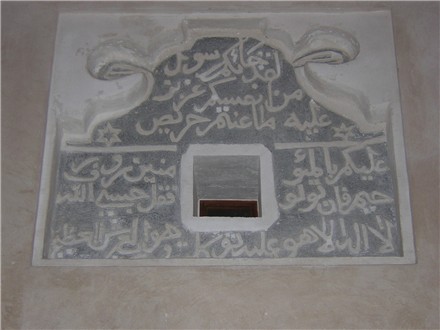 لقد جاكم رسول
من انفسكم عزيز
عليه ما عنتم حريص
عليكم بالمؤ منين روف ر
حيم فان تولو فقل حسبي الله
لا اله الا هو عليه توكلت وهو رب العرش العظيم